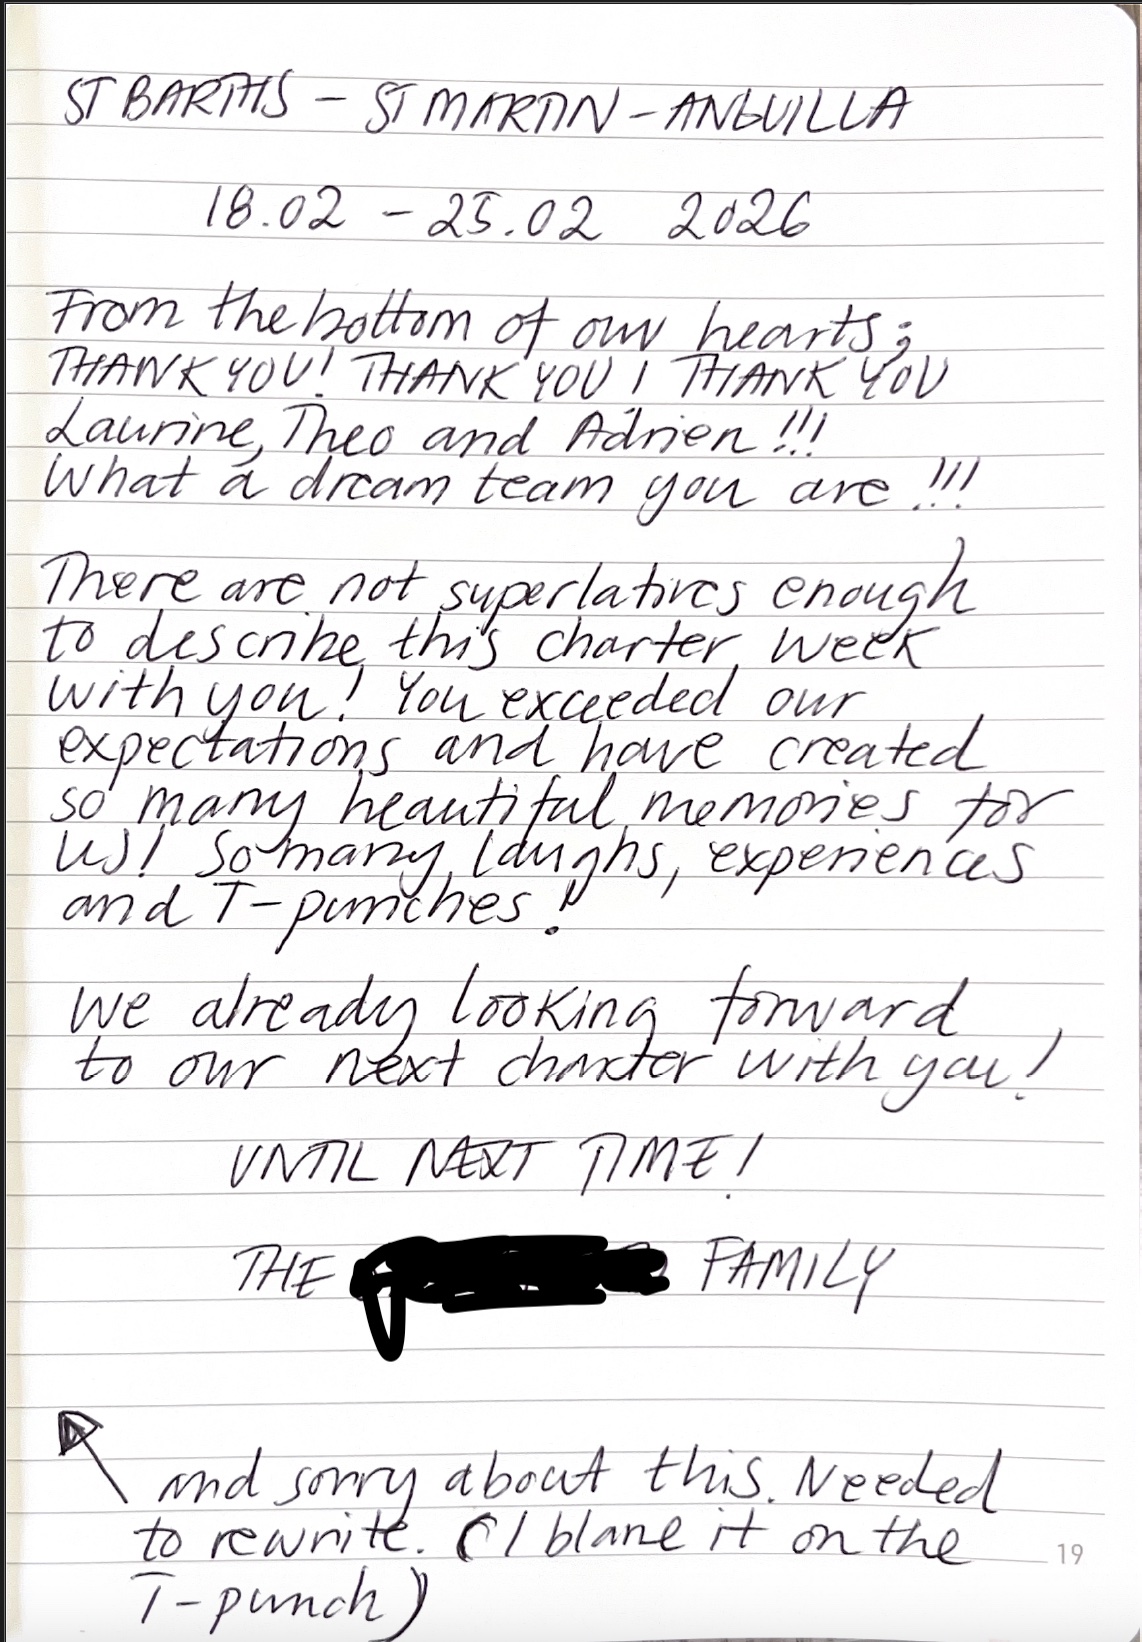 ST BARTHS - ST MARTIN - ANGUILLA
18.02 - 25.02 2026
From the bottom of our hearts;
THANK YOU! THANK YOU! THANK YOU
Laurine, Theo and Adrien!!!
What a dream team you are!!!
There are not superlatives enough
to describe this charter week
with you! You exceeded our
expectations and have created
so many beautiful memories for
us! So many laughs, experiences
and T-punches!
We already looking forward
to our next charter with you!
UNTIL NEXT TIME!
THE FAMILY
and sorry about this. Needed
to rewrite. (I blane it on the
T-punch)
19